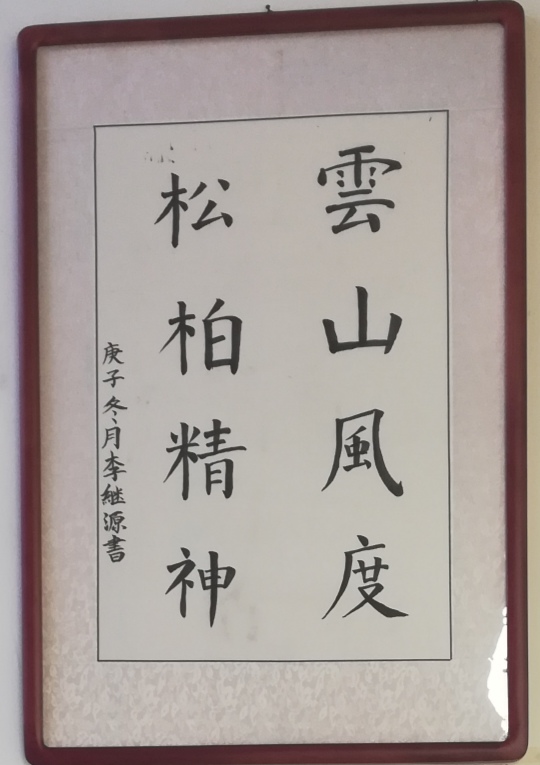 雲山風度
松柏精神
庚子冬月李継源書